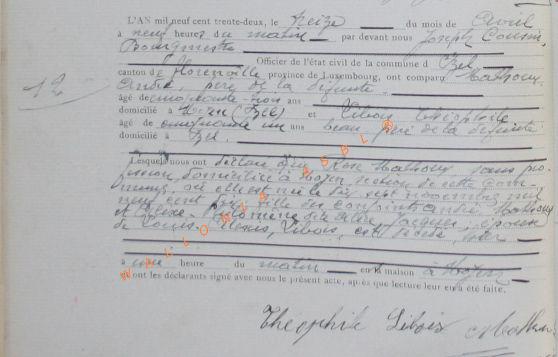 L'AN mil neuf cent trente-deux, le treize du mois de Avril
à neuf heures du matin par devant nous Joseph Cousin,
Bourgmestre
Officier de l'état civil de la commune d Izel
canton de Florenville province de Luxembourg, ont comparu Mathoux
André, père de la défunte
âgé de cinquante trois ans
domicilié à (Izel) et Libois Théophile
âgé de cinquante un ans beau père de la défunte
domicilié à Izel.
Lesquels nous ont déclaré que Rose Mathoux sans pro-
fession, domiciliée à section de cette Com-
mune, où elle est née le dix sept novembre mil
neuf cent fille des conjoints André Mathoux
et Philomène épouse
de Louis Libois, est décédée hier
12
à une heure du matin en la maison à
Et ont les déclarants signé avec nous le présent acte, après que lecture leur en a été faite.
WALLONIA ASBL ©
Théophile Libois Mathoux